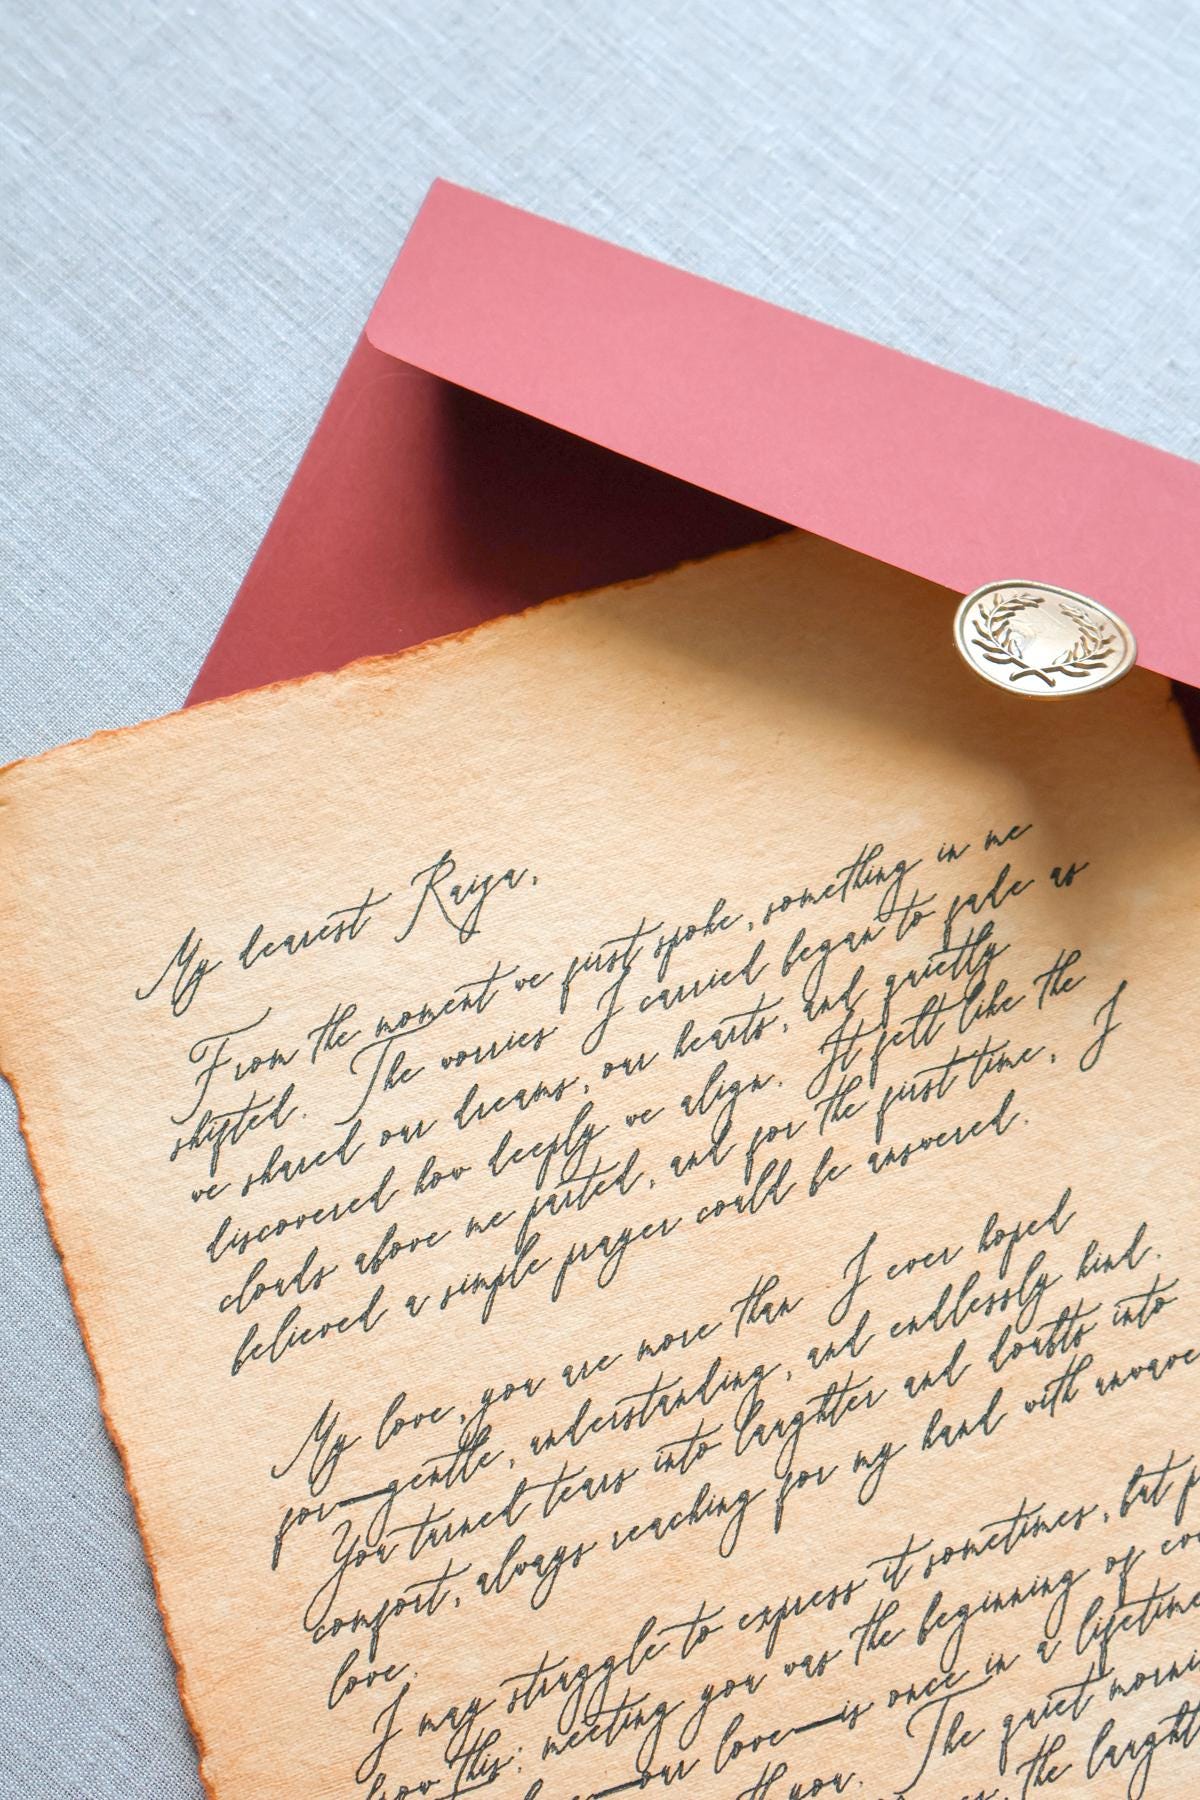 My dearest Raiya,
From the moment we first spoke, something in me
shifted. The worries I carried began to fade as
we shared our dreams, our hearts, and quietly
discovered how deeply we align. It felt like the
clouds above me parted, and for the first time, I
believed a simple prayer could be answered.
My love, you are more than I ever hoped
for—gentle, understanding, and endlessly kind.
You turned tears into laughter and doubts into
comfort, always reaching for my hand with
love.
I may struggle to express it sometimes, but
how this: meeting you was the beginning of
our love—is once in a lifetime
you. The quiet
the